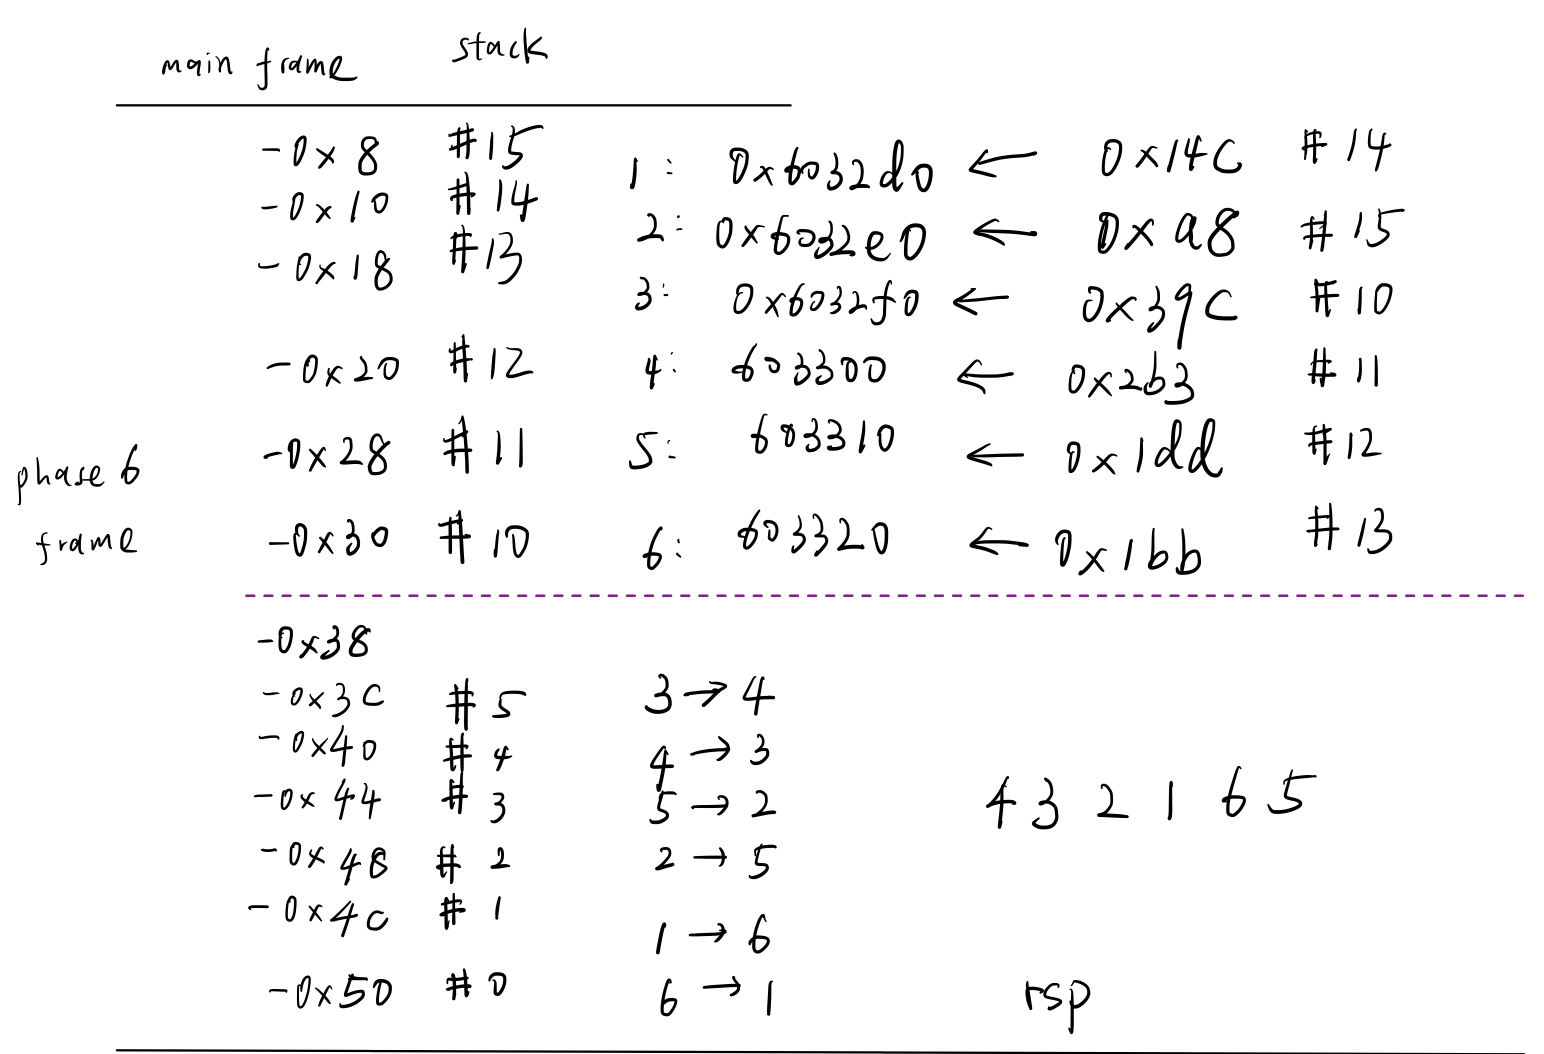 main frame stack
-0x8 #15 1: 0x6032d0 ← 0x14C #14
-0x10 #14
2: 0x6032e0 ← 0xa8 #15
-0x18 #13
3: 0x6032f0 ← 0x39C #10
-0x20 #12 4: 603300 ← 0x2b3 #11
-0x28 #11 5: 603310 ← 0x1dd #12
phase 6
frame
-0x30 #10 6: 603320 ← 0x1bb #13
-0x38
-0x3C #5 3→4
-0x40 #4 4→3
-0x44 #3 5→2 4 3 2 1 6 5
-0x48 #2 2→5
-0x4C #1 1→6
-0x50 #0 6→1 rsp